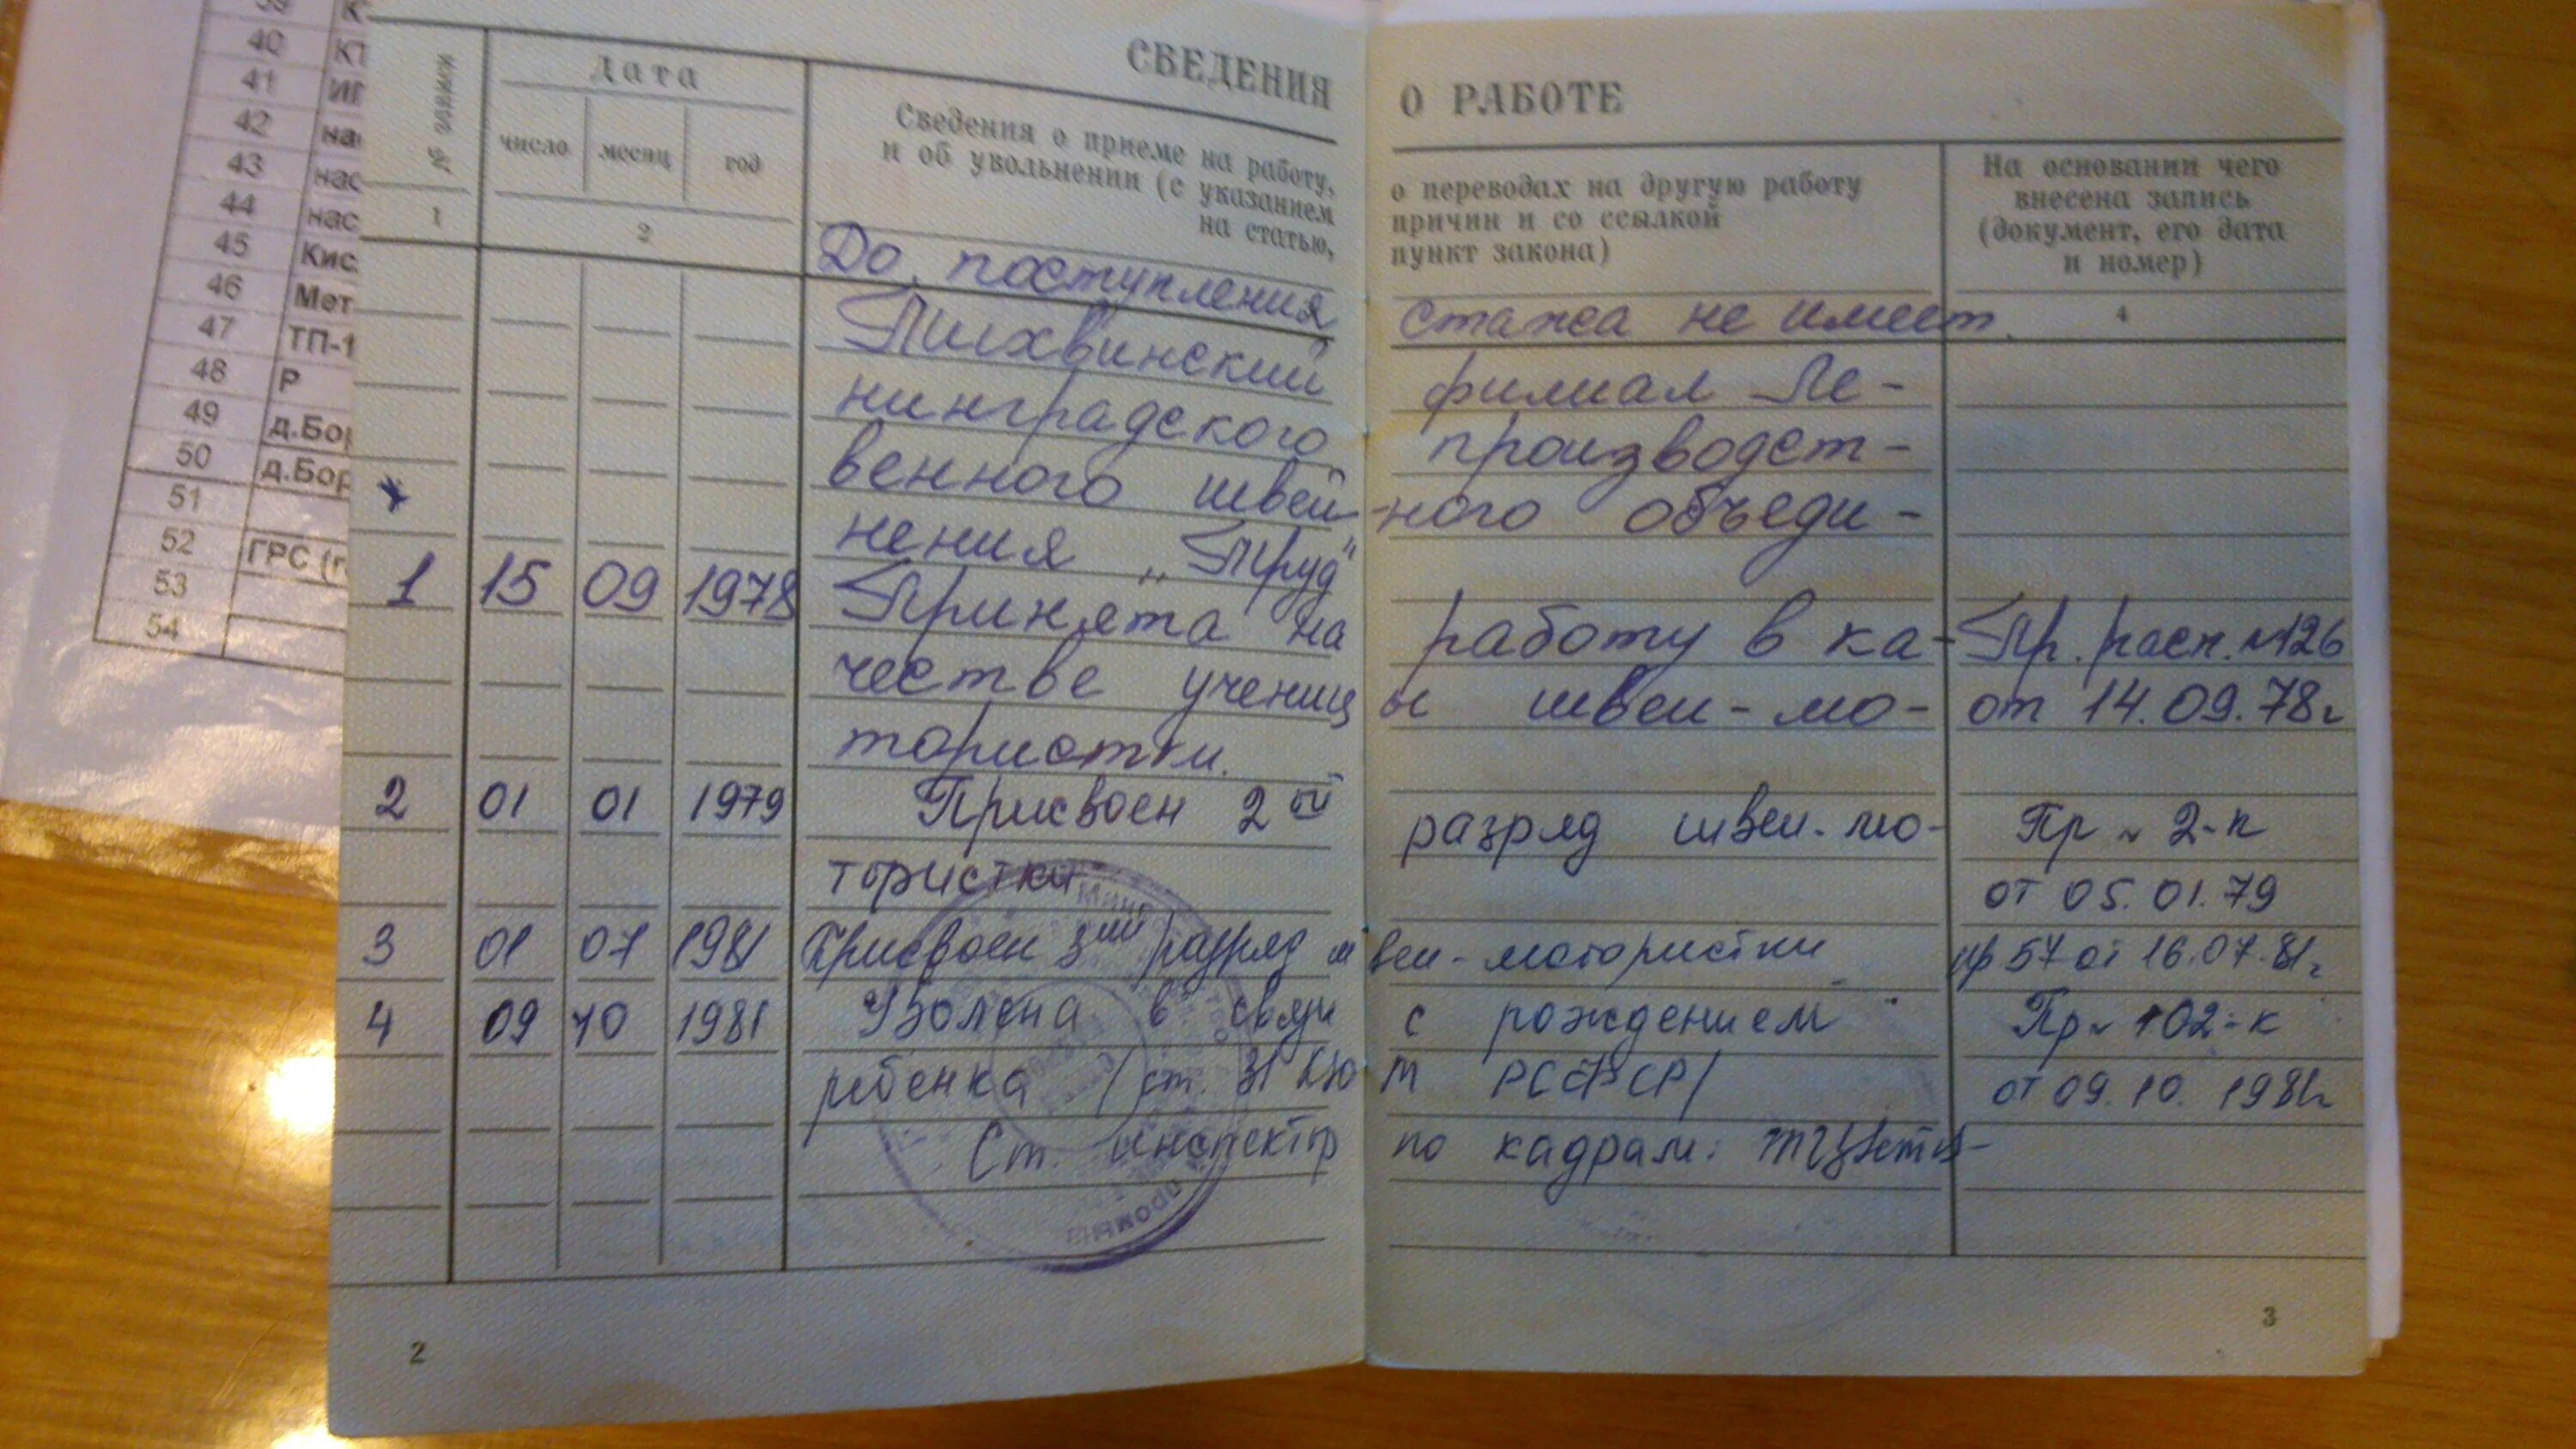 39 К
40 КТ
41 ИГ
42 на
43 нас
44 нас
45 Кис
46 Мет
47 ТП-1
48 Р
49 д.Бор
50 д.Бор
51
52 ГРС (г
53
54
СВЕДЕНИЯ О РАБОТЕ
№ записи
Дата
число месяц год
Сведения о приеме на работу, о переводах на другую работу
и об увольнении (с указанием причин и со ссылкой
на статью, пункт закона)
На основании чего
внесена запись
(документ, его дата
и номер)
1 2 4
До поступления стажа не имеет.
Тихвинский филиал Ле-
нинградского производст-
венного швей-ного объеди-
нения „Труд"
1 15 09 1978 Принята на работу в ка- Пр. расп. №126
честве учениц ы швеи-мо- от 14.09.78г
тористки.
2 01 01 1979 Присвоен 2ой разряд швеи-мо- Пр № 2-к
тористки от 05.01.79
3 01 07 1981 Присвоен 3ий разряд швеи-мотористки пр 57 от 16.07.81г
4 09 10 1981 Уволена в связи с рождением Пр № 102-к
ребенка /ст. 31 КЗоТ РСФСР/ от 09.10.1981г
Ст. инспектор по кадрам:
промыш
2
3